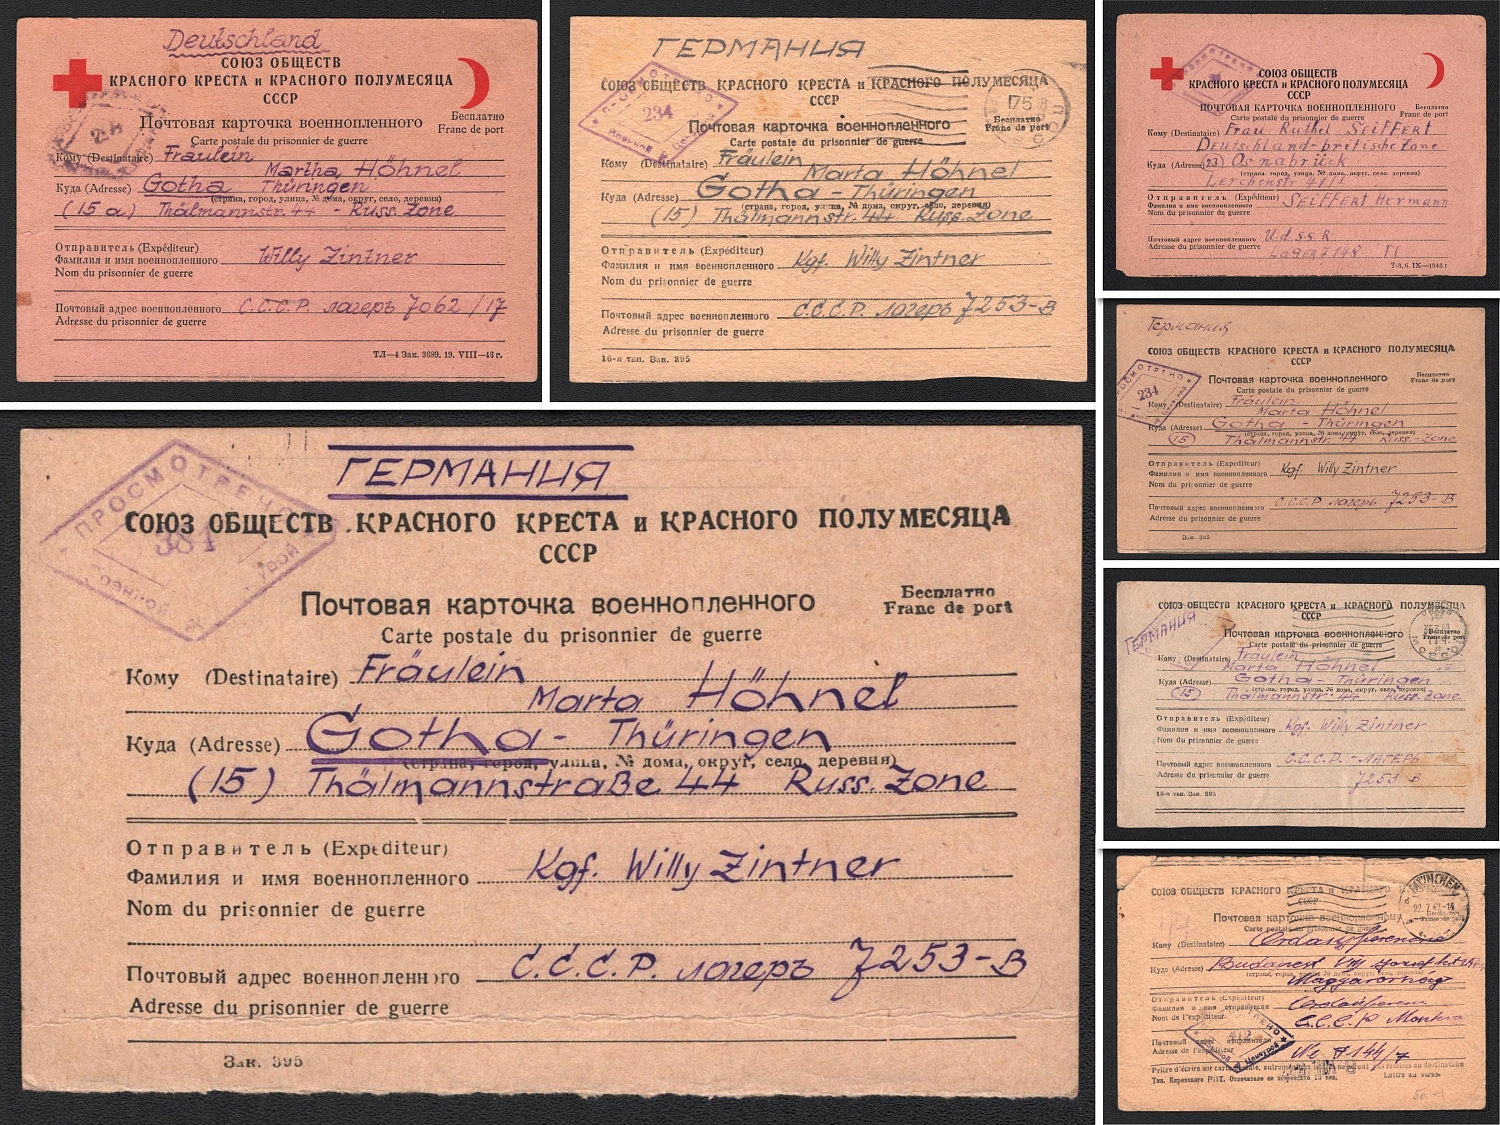 Deutschland
СОЮЗ ОБЩЕСТВ
КРАСНОГО КРЕСТА и КРАСНОГО ПОЛУМЕСЯЦА
СССР
Почтовая карточка военнопленного
Бесплатно
Franc de port
Carte postale du prisonnier de guerre
Кому (Destinataire) Fräulein
Martha Höhnel
Куда (Adresse) Gotha Thüringen
(страна, город, улица, № дома, округ, село, деревня)
(15 a) Thälmannstr. 44 - Russ. Zone
Отправитель (Expéditeur)
Фамилия и имя военнопленного Willy Zintner
Nom du prisonnier de guerre
Почтовый адрес военнопленного С.С.С.Р. лагерь 7062/17
Adresse du prisonnier de guerre
ТЛ—4 Зак. 3689. 19. VIII—46 г.
ГЕРМАНИЯ
СОЮЗ ОБЩЕСТВ КРАСНОГО КРЕСТА и КРАСНОГО ПОЛУМЕСЯЦА
СССР
234
Почтовая карточка военнопленного
Бесплатно
Franc de port
Carte postale du prisonnier de guerre
Кому (Destinataire) Fräulein
Marta Höhnel
Куда (Adresse) Gotha - Thüringen
(страна, город, улица, № дома, округ, село, деревня)
(15) Thälmannstr. 44 Russ. Zone
Отправитель (Expéditeur)
Фамилия и имя военнопленного Kgf. Willy Zintner
Nom du prisonnier de guerre
Почтовый адрес военнопленного С.С.С.Р. лагерь 7253-В
Adresse du prisonnier de guerre
16-я тип. Зак. 395
СОЮЗ ОБЩЕСТВ
КРАСНОГО КРЕСТА и КРАСНОГО ПОЛУМЕСЯЦА
СССР
ПОЧТОВАЯ КАРТОЧКА ВОЕННОПЛЕННОГО
Бесплатно
Franc de port
Carte postale du prisonnier de guerre
Кому (Destinataire) Frau Ruthel SEIFFERT
Deutschland-britische Zone
Куда (Adresse) (23) Osnabrück
(страна, город, улица, № дома, округ, село, деревня)
Lerchenstr
Отправитель (Expéditeur)
Фамилия и имя военнопленного SEIFFERT Hermann
Nom du prisonnier de guerre
Почтовый адрес военнопленного U.d.S.S.R.
Adresse du prisonnier de guerre Lager 7148
Германия
СОЮЗ ОБЩЕСТВ КРАСНОГО КРЕСТА и КРАСНОГО ПОЛУМЕСЯЦА
СССР
234
Почтовая карточка военнопленного
Бесплатно
Franc de port
Carte postale du prisonnier de guerre
Кому (Destinataire) Fräulein
Marta Höhnel
Куда (Adresse) Gotha - Thüringen
(страна, город, улица, № дома, округ, село, деревня)
(15) Thälmannstr. 44 Russ. Zone
Отправитель (Expéditeur)
Фамилия и имя военнопленного Kgf. Willy Zintner
Nom du prisonnier de guerre
Почтовый адрес военнопленного С.С.С.Р лагерь 7253-В
Adresse du prisonnier de guerre
Зак. 395
ПРОСМОТРЕНО
381
ГЕРМАНИЯ
СОЮЗ ОБЩЕСТВ КРАСНОГО КРЕСТА и КРАСНОГО ПОЛУМЕСЯЦА
СССР
Почтовая карточка военнопленного
Бесплатно
Franc de port
Carte postale du prisonnier de guerre
Кому (Destinataire) Fräulein
Marta Höhnel
Куда (Adresse) Gotha - Thüringen
(страна, город, улица, № дома, округ, село, деревня)
(15) Thälmannstraße 44 Russ. Zone
Отправитель (Expéditeur)
Фамилия и имя военнопленного Kgf. Willy Zintner
Nom du prisonnier de guerre
Почтовый адрес военнопленного С.С.С.Р. лагерь 7253-В
Adresse du prisonnier de guerre
Зак. 395
СОЮЗ ОБЩЕСТВ КРАСНОГО КРЕСТА и КРАСНОГО ПОЛУМЕСЯЦА
СССР
ГЕРМАНИЯ
Почтовая карточка военнопленного
Бесплатно
Franc de port
Carte postale du prisonnier de guerre
Кому (Destinataire) Fräulein
Marta Höhnel
Куда (Adresse) Gotha - Thüringen
(страна, город, улица, № дома, округ, село, деревня)
(15) Thälmannstr. 44 Russ. Zone
Отправитель (Expéditeur)
Фамилия и имя военнопленного Kgf. Willy Zintner
Nom du prisonnier de guerre
Почтовый адрес военнопленного С.С.С.Р. - ЛАГЕРЬ
Adresse du prisonnier de guerre 7253 В
16-я тип. Зак. 395
СОЮЗ ОБЩЕСТВ КРАСНОГО КРЕСТА и КРАСНОГО
СССР
MÜNCHEN
22.7.47
Почтовая карточка военнопленному
Carte postale du prisonnier de guerre
Кому (Destinataire)
Куда (Adresse) Budapest VIII
(страна, город, улица, № дома, округ, село, деревня)
Magyarország
Отправитель (Expéditeur)
Фамилия и имя отправителя
Nom de l'expéditeur
Почтовый адрес отправителя
Adresse de l'expéditeur No 7144/7
Prière d'écrire sur carte postale,
Lettre au verso